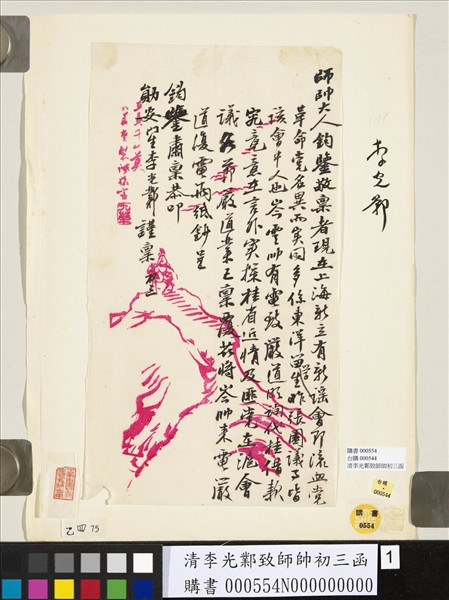 師帥大人鈞鑒敬稟者現在上海新立有新議會即流血黨
革命党名異而實同多係東洋留學生昨張園議事皆
該會中人也岑雲帥有電致嚴道明詢代桂借款
究竟意在言外實探桂省近情及匪党在滬會
議各節嚴道業已稟覆茲將岑帥來電嚴
道復電兩紙鈔呈
鈞鑒肅稟恭叩
勛安 李光鄴謹稟 初三
李光鄴
購書 000554
台購 000544
清李光鄴致師帥初三函
台購
000544
購書
0554
乙 四 75
清李光鄴致師帥初三函
購書 000554N000000000
1